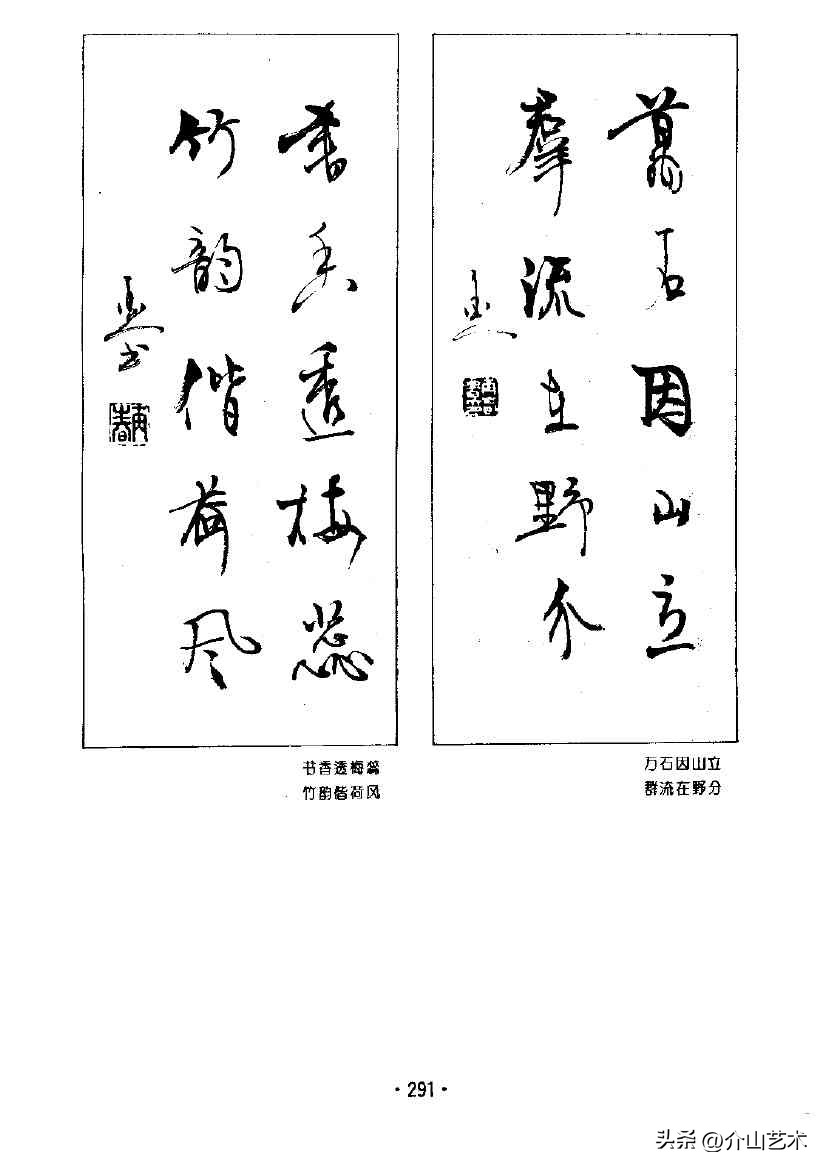 萬石因山立
羣流在野分
書香透梅蕊
竹韵偕荷風
万石因山立
群流在野分
书香透梅蕊
竹韵偕荷风
·291·
头条 @介山艺术